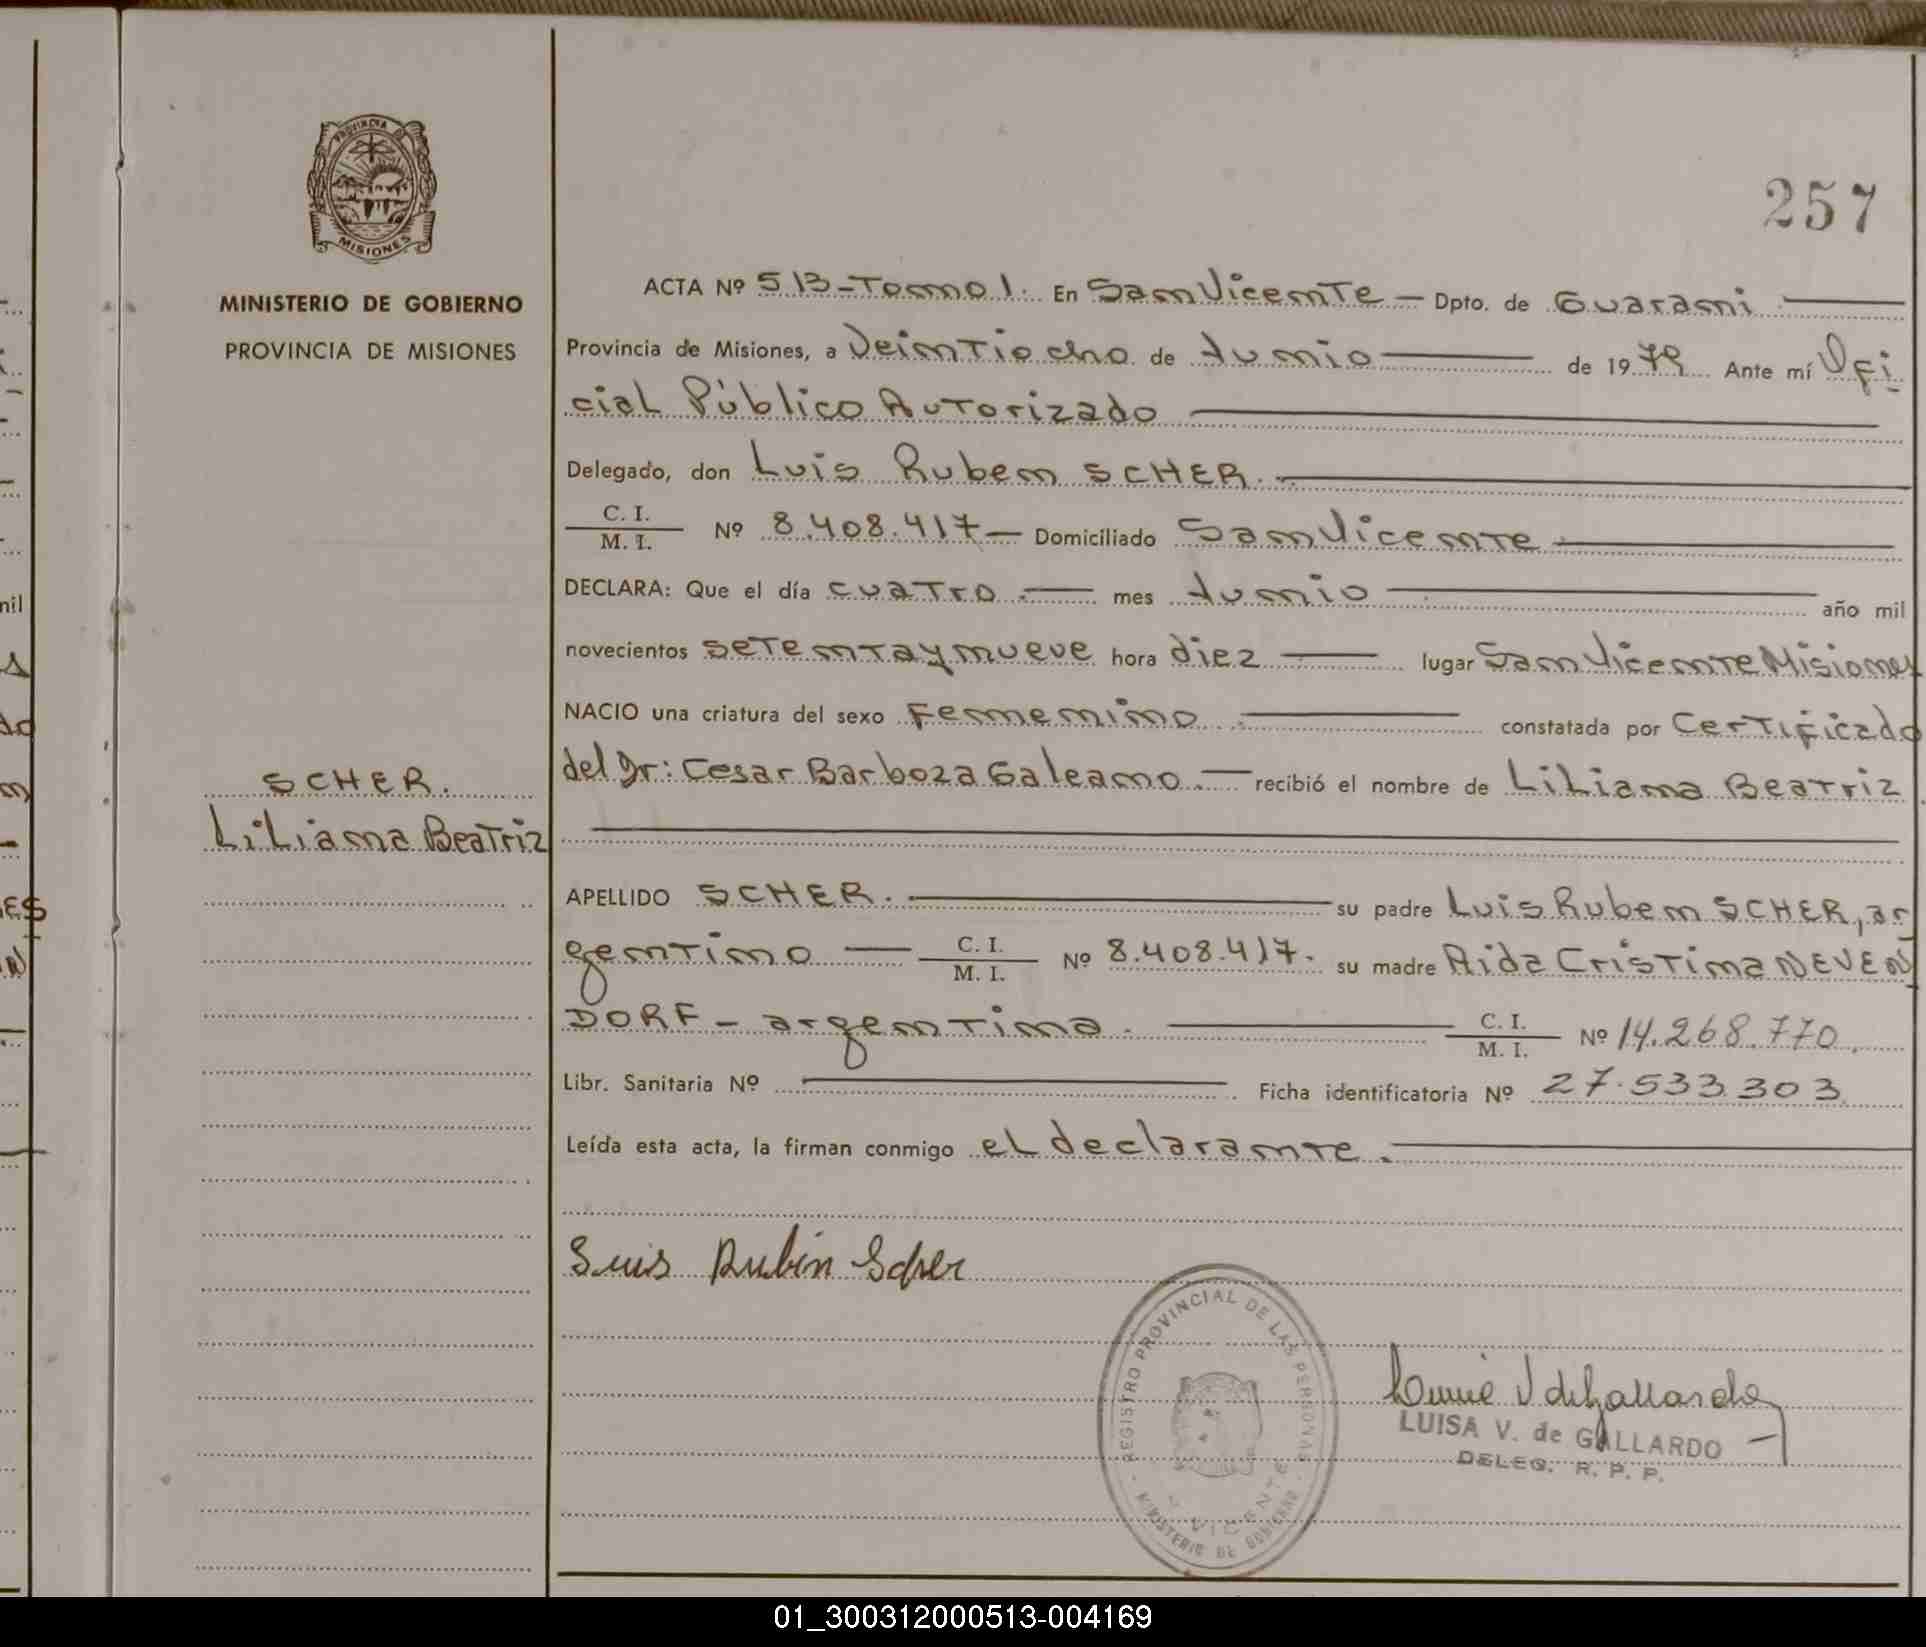 257
PROVINCIA DE
MISIONES
MINISTERIO DE GOBIERNO
PROVINCIA DE MISIONES
SCHER.
Liliana Beatriz
ACTA Nº 513-Tomo 1. En San Vicente - Dpto. de Guarani
Provincia de Misiones, a Veintiocho de Junio de 1979 Ante mí Ofi
cial Público Autorizado
Delegado, don Luis Ruben SCHER.
C. I.
M. I. Nº 8.408.417- Domiciliado San Vicente
DECLARA: Que el día cuatro. mes Junio año mil
novecientos setenta y nueve hora diez lugar San Vicente Misiones
NACIO una criatura del sexo Femenino. constatada por Certificado
del Dr: Cesar Barboza Galeano. recibió el nombre de Liliana Beatriz
APELLIDO SCHER. su padre Luis Ruben SCHER, ar
gentino C. I.
M. I. Nº 8.408.417. su madre Aida Cristina NEVEN
DORF - argentina. C. I.
M. I. Nº 14.268.770.
Libr. Sanitaria Nº Ficha identificatoria Nº 27.533.303
Leída esta acta, la firman conmigo el declarante.
Luis Rubén Scher
REGISTRO PROVINCIAL DE LAS PERSONAS
VICENTE
MINISTERIO DE GOBIERNO
V de Gallardo
LUISA V. de GALLARDO
DELEG. R. P. P.
01_300312000513-004169